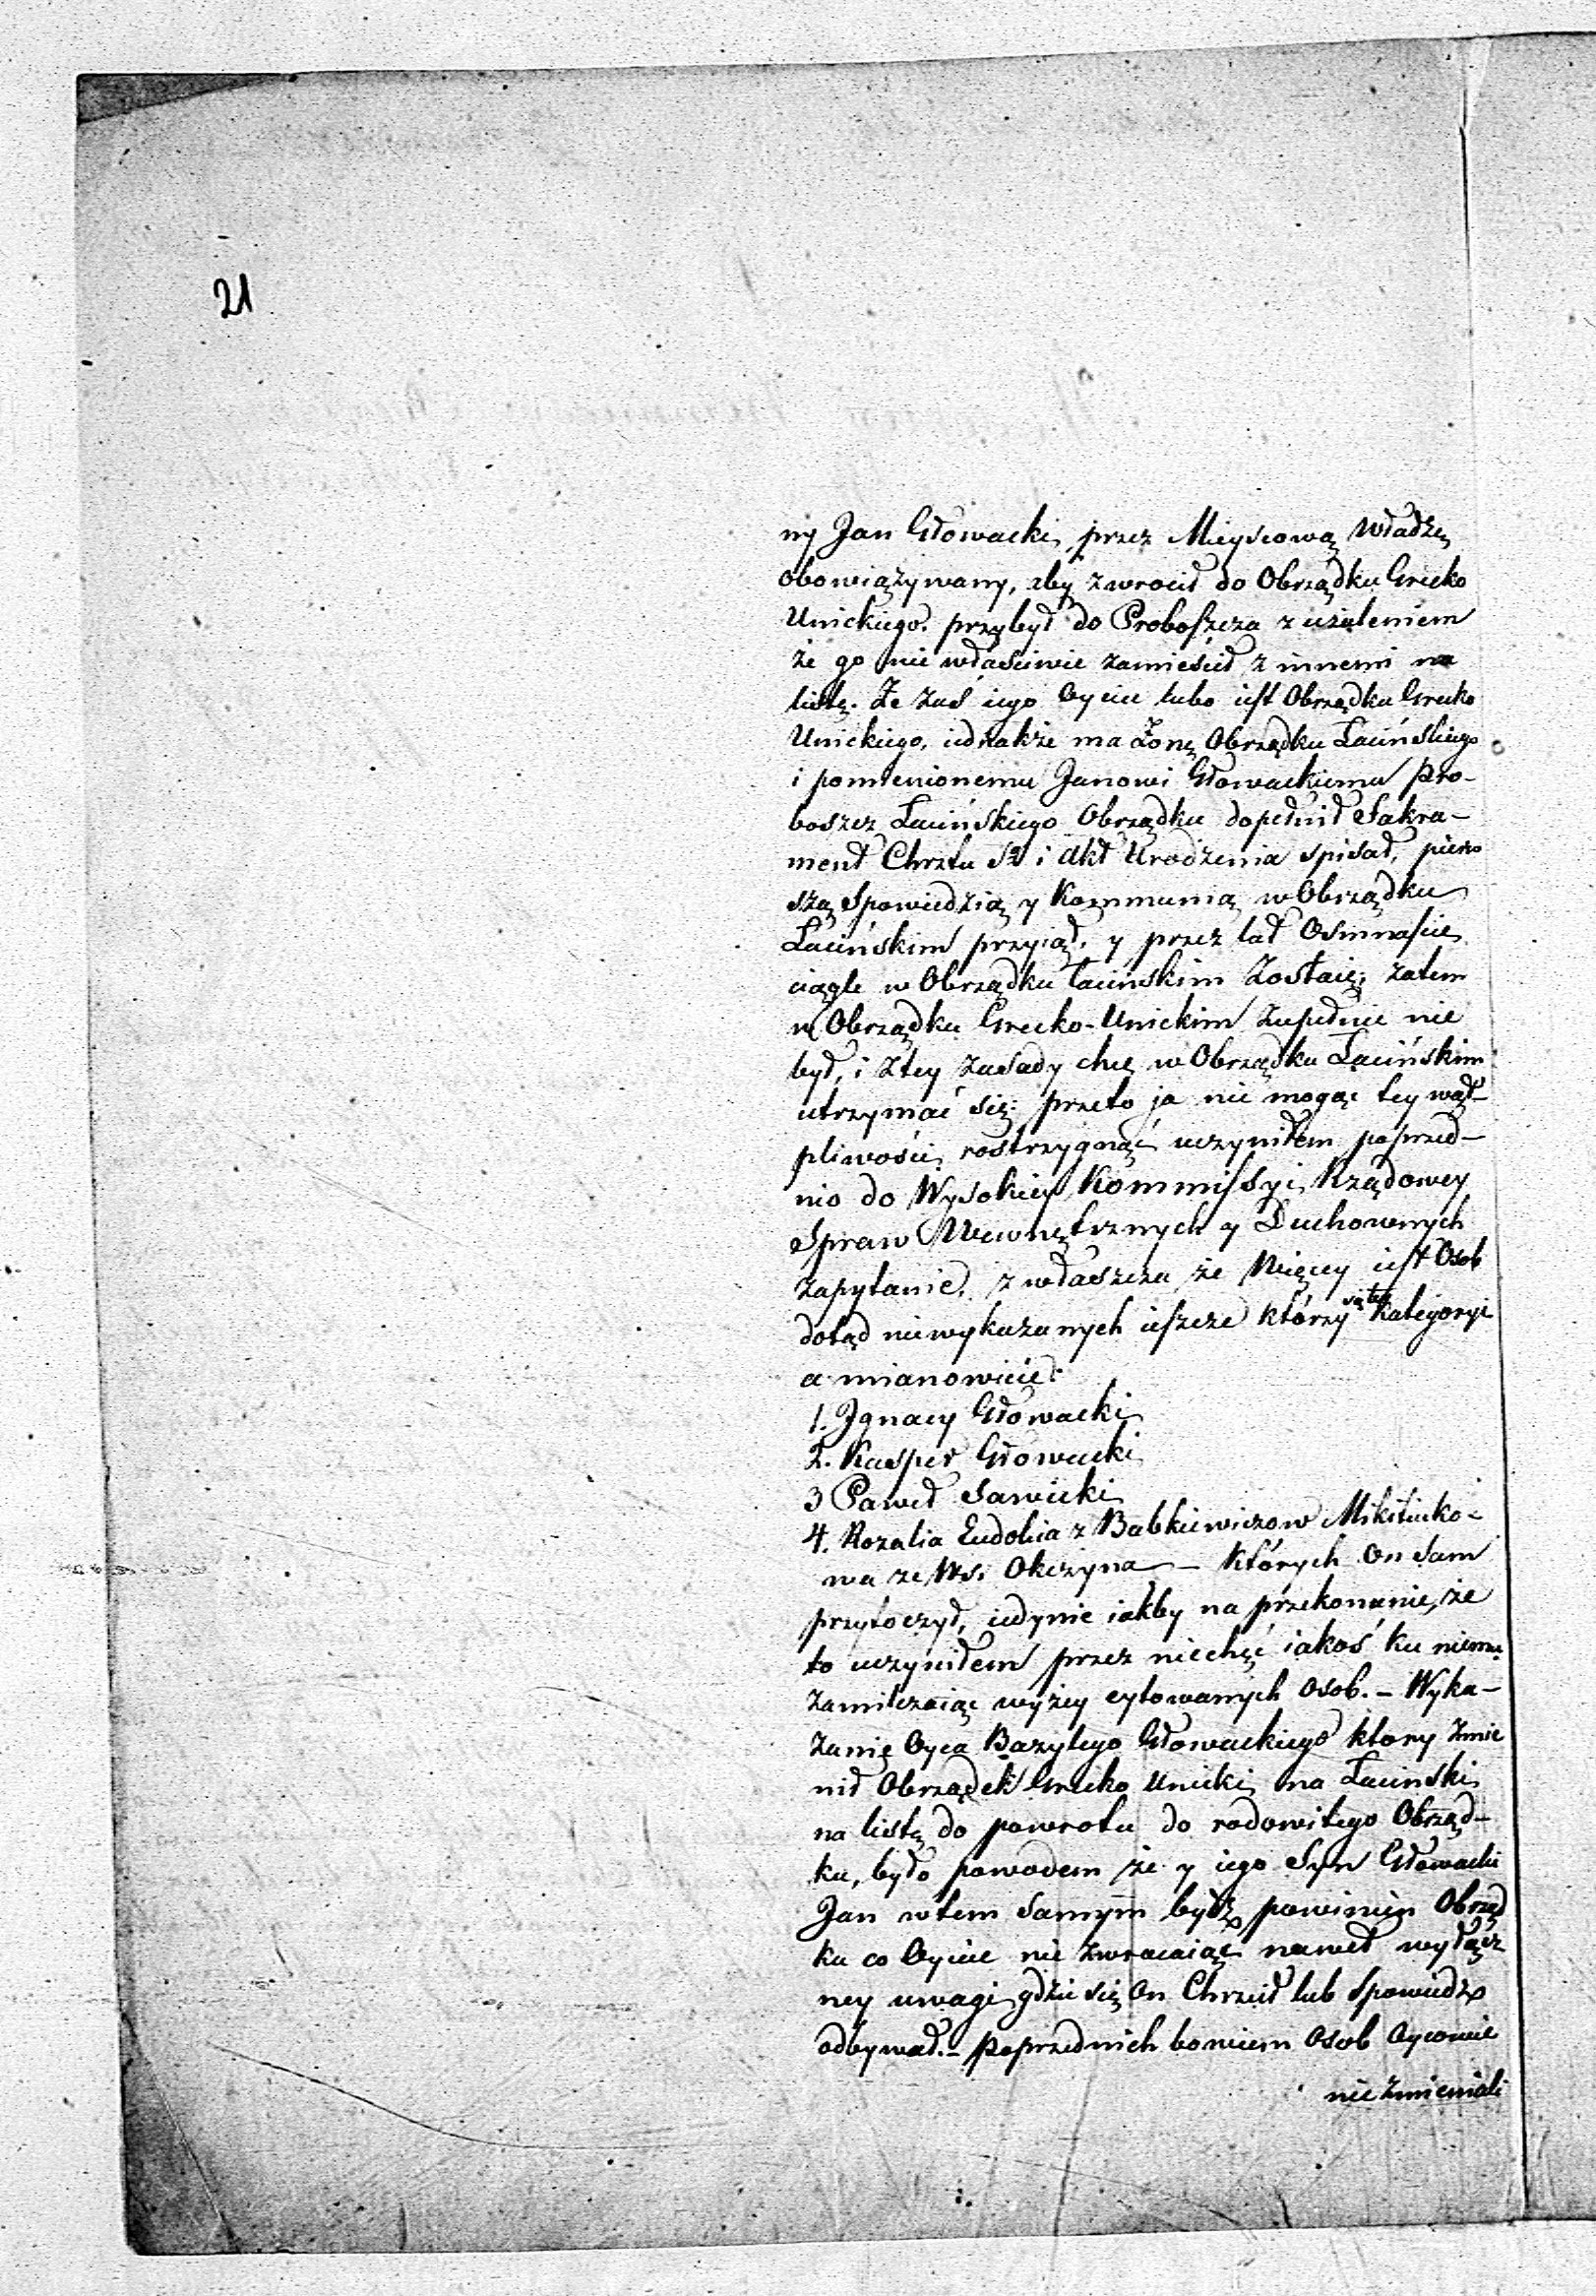 21
ny Jan Głowacki, przez Mieyscową Władzę
obowiązywany, aby zwrocił do Obrządku Grecko
Unickiego. przybył do Proboszcza z użaleniem
że go nie właściwie zamieścił z innemi na
listę. Że zaś iego Oyciec lubo iest Obrządku Grecko
Unickiego, iednakże ma Żonę Obrządku Łacińskiego
i pomienionemu Janowi Głowackiemu Pro-
boszcz Łacińskiego Obrządku dopełnił Sakra-
ment Chrztu Sgo i Akt Urodzenia spisał, pierw
szą Spowiedzią y Kommunią w Obrządku
Łacińskim przyiął, y przez lat Osmnaście
ciągle w Obrządku łacińskim Zostaię; zatem
w Obrządku Grecko-Unickim Zupełnie nie
był, i z tey Zasady chcę w Obrządku Łacińskim
utrzymać się; przeto ja nie mogąc tey wąt-
pliwości rostrzygnąć uczyniłem poprzed-
nio do Wysokiey Kommissyi Rządowey
Spraw Wewnętrznych y Duchownych
Zapytanie, z właszcza że Więcey iest Osob
dotąd niewykazanych ieszcze którzy są tey Kategoryi
a mianowicie:
1. Jgnacy Głowacki
2. Kasper Głowacki
3 Paweł Sawicki
4. Rozalia Eudokia z Babkiewiczow Mikitiuko-
wa ze Wsi Okczyna – Których On sam
przytoczył, iedynie iakby na przekonanie, że
to uczyniłem przez niechęć iakoś ku niemu
Zamilczaiąc wyżey cytowanych Osob. – Wyka-
zanie Oyca Bazylego Głowackiego ktory Zmie
nił Obrządek Grecko Unicki na Łacinski
na listę do powrotu do rodowitego Obrząd-
ku, było powodem że y iego Syn Głowacki
Jan wtem samym bydź powinien Obrząd
ku co Oyciec nie Zwracaiąc nawet wyłącz
ney uwagi, gdzie się On Chrzcił lub Spowiedź
odbywał. – poprzednich bowiem Osob Oycowie
nie Zmieniali